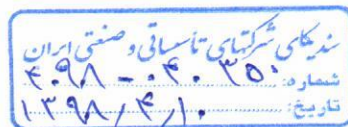 سندیکای شرکتهای تأسیساتی و صنعتی ایران
شماره: ۴۰۹۸ - ۰۴۰۳۵۰
تاریخ: ۱۳۹۸/۴/۱۰